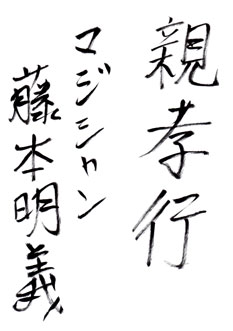 親孝行
マジシャン
藤本明義